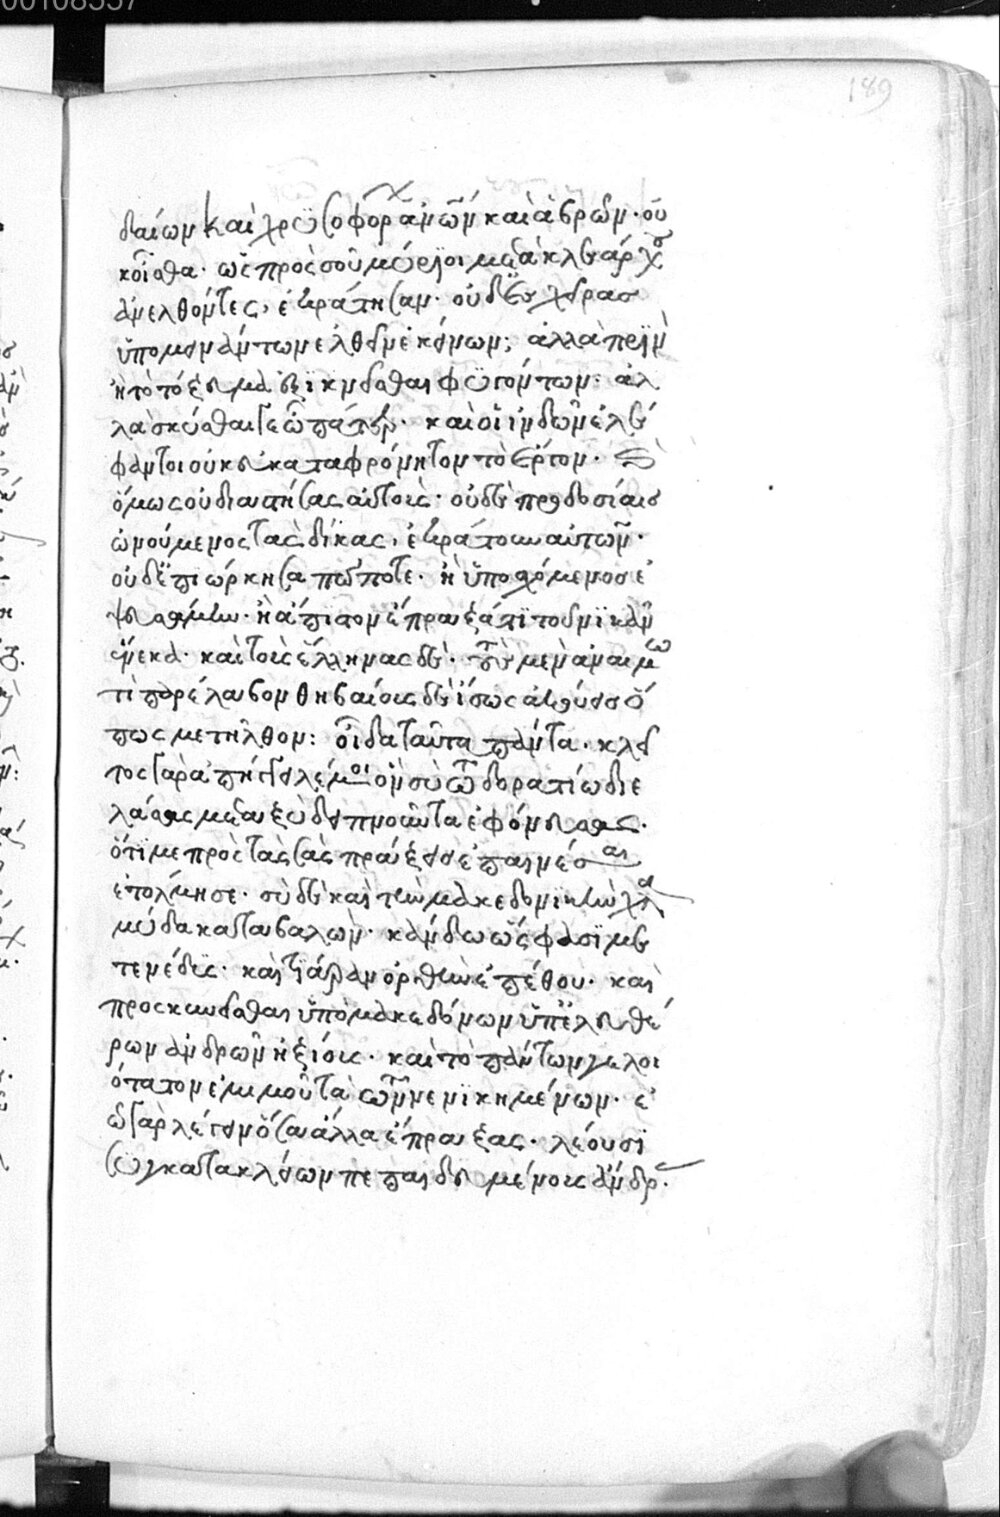 δαίων καὶ χρυσοφόρων ἀνῶν καὶ ἁβρῶν· οὐ
κοῖσθα· ὡς πρὸς οῦ μύριοι μετὰ κλεάρχου
ἀνελθόντες, ἐκράτησαν· οὐδ εἰς χεῖρασ
ὑπομεινάντων ἐλθεῖν ἐκείνων; ἀλλὰ πρὶν
ἢ τὸ τόξευμα ἐξικνεῖσθαι φυγόντων· ἀλ
λὰ σκύθαι γε ὦ πάτερ· καὶ οἱ ἰνδῶν ἐλέ
φαντοι οὐκ εὐκαταφρόνητον τὸ ἔργον· καὶ
ὅμως οὐ διαστήσας αὐτοὺς· οὐδὲ προδοσίαισ
ὠνούμενος τὰς δίκας, ἐκράτουν αὐτῶν·
οὐδ ἐπιώρκησα πώποτε· ἢ ὑποσχόμενοσ ἐ
ψευσάμην· ἢ ἄπιστον ἔπραξά τι τοῦ νικᾶν
ἕνεκα· καὶ τοὺς ἕλληνας δὲ· τοὺς μὲν ἀναιμω
τὶ παρέλαβον θηβαίους δὲ ἴσως ἀκούεισ ὅ
πως μετῆλθον: οἶδα ταῦτα πάντα· κλεῖ
τος γὰρ ἀπήγγειλέ μοι ὃν σὺ τῶ δορατίω διε
λάσας μεταξὺ δειπνοῦντα ἐφόνευσας·
ὅτι με πρὸς τὰς σὰς πράξεισ ἐπαινέσαι
ἐτόλμησε· σὺ δὲ καὶ τὴν μακεδονικὴν χλα
μύδα καταβαλὼν· κάνδυν ὥς φασὶ με
τενέδυς· καὶ τιάραν ὀρθὴν ἐπέθου· καὶ
προσκυνεῖσθαι ὑπὸ μακεδόνων ὑπ ἐλευθέ
ρων ἀνδρῶν ἠξίους· καὶ τὸ πάντων γελοι
ότατον ἐμιμοῦ τὰ τῶν νενικημένων· ἐ
ῶ γὰρ λέγειν ὅσα ἄλλα ἔπραξας· λέουσι
συγκατακλείων πεπαιδευμένους ἄνδρ·